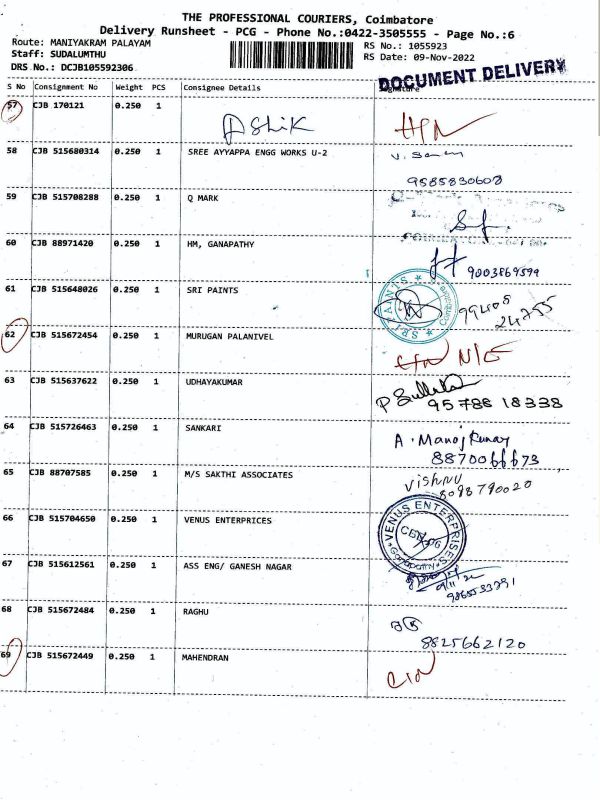 THE PROFESSIONAL COURIERS, Coimbatore
Delivery Runsheet - PCG - Phone No.:0422-3505555 - Page No.:6
Route: MANIYAKRAM PALAYAM
RS No.: 1055923
Staff: SUDALUMTHU
RS Date: 09-Nov-2022
DRS No.: DCJB105592306
DOCUMENT DELIVERY
S No Consignment No Weight PCS Consignee Details Signature
57 CJB 170121 0.250 1
Ashik
58 CJB 515680314 0.250 1 SREE AYYAPPA ENGG WORKS U-2
9585830608
59 CJB 515708288 0.250 1 Q MARK
60 CJB 88971420 0.250 1 HM, GANAPATHY
9003869599
61 CJB 515648026 0.250 1 SRI PAINTS
SRI PAINTS
99408
24755
62 CJB 515672454 0.250 1 MURUGAN PALANIVEL
63 CJB 515637622 0.250 1 UDHAYAKUMAR
95788 18338
64 CJB 515726463 0.250 1 SANKARI
A. Manoj Kumar
8870066673
65 CJB 88707585 0.250 1 M/S SAKTHI ASSOCIATES
Vishnu
8098790020
66 CJB 515704650 0.250 1 VENUS ENTERPRICES
VENUS ENTERPRISES
Ganapathy
67 CJB 515612561 0.250 1 ASS ENG/ GANESH NAGAR
68 CJB 515672484 0.250 1 RAGHU
8825662120
69 CJB 515672449 0.250 1 MAHENDRAN